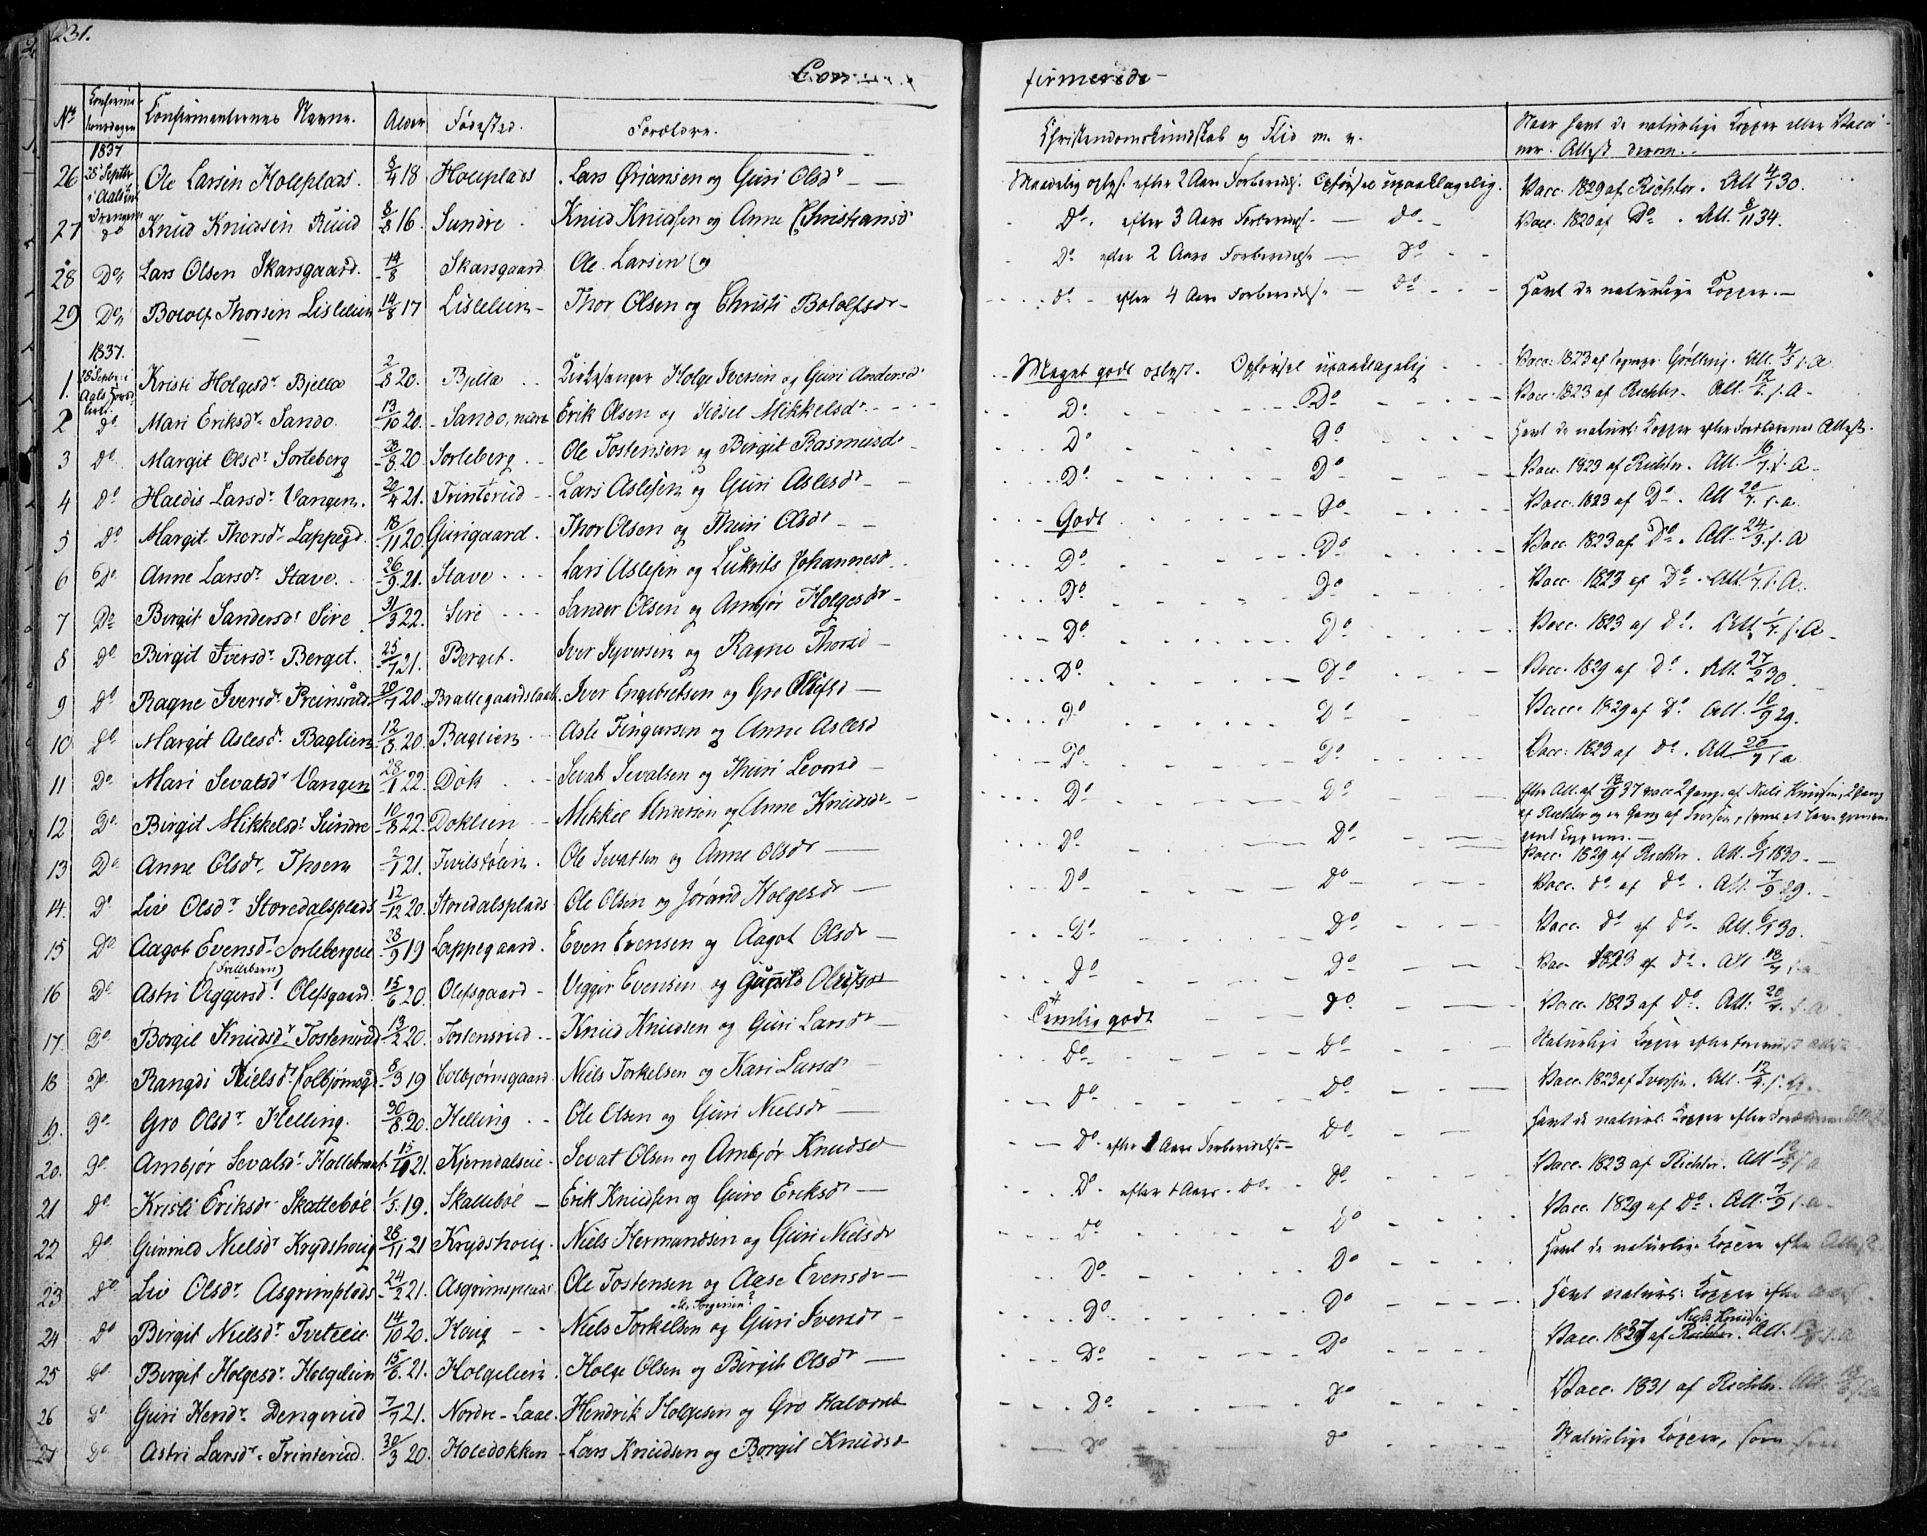 231.
Con- firmerede-
No Confirma- tionsdagen Confirmanternes Navne. Alder Fødested. Forældre. Christendomskundskab og Flid m. v. Naar havt de naturlige Kopper eller Vacci-
ner. Attest derom.
1837
26 25 Septbr i Aal Ole Larsen Holeplads. 8/4 18 Holeplads Lars Ørjansen og Guri Olsdr Maadelig oplyst efter 2 Aars Forberedelse. Opførsel upaaklagelig. Vacc. 1829 af Richter. Att 4/1 30.
27 do Knud Knudsen Ruud 8/8 16. Sundre Knud Knudsen og Anne Christiansd Do. efter 3 Aars Forberedelse do Vacc. 1820 af Do. Att. 8/11 34.
28 Do Lars Olsen Skarsgaard. 14/8 Skarsgaard Ole Larsen og Do efter 2 Aars Forberedelse do
29 Do Botolf Thorsen Lislelien 14/8 17 Lislelien Thor Olsen og Christi Botolfsdr do efter 4 Aars Forberedelse Do Havt de naturlige Kopper.
1837.
1. Kristi Holgesdr Bjella 2/8 20. Bjella Kirkesanger Holge Iversen og Guri Andersd Meget godt oplyst. Opførsel upaaklagelig Vacc. 1823 af
2 do Mari Eriksdr Sando. 13/10 20. Sando, nedre Erik Olsen og Sidsel Mikkelsdr Do Do Vacc. 1823 af Richter. Att. 12/7 s. A
3 do Margit Olsdr Sorteberg 20/8 20 Sorteberg Ole Tostensen og Birgit Rasmusd Do do Havt de naturl. Kopper efter Forældrenes Attest.
4 do Haldis Larsdr Vangen 20/4 21. Trinterud Lars Aslesen og Guri Aslesdr Do Do Vacc. 1823 af Richter. Att. 18/7 s. A
5 do Margit Thorsdr Lappegd. 18/11 20 Gurigaard Thor Olsen og Thuri Olsdr Godt do Vacc. 1823 af Do. Att 20/7. s. a.
6 Do Anne Larsdr Stave. 26/9 21. Stave Lars Aslesen og Lukrits Johannesd Do Do Vacc. 1823 af Do. Att. 24/9. s. A
7 Do Birgit Sandersdr Sire 31/3 22. Sire Sander Olsen og Ambjør Holgesdr Do Do Vacc. 1823 af Do. Att 1/7 s. A.
8 do Birgit Iversdr Berget. 25/1 21. Berget. Iver Syversen og Ragne Thorsd Do Do Vacc. 1823 af Do. Att 1/7. s. A
9 do Ragne Iversdr Preinsrud 20/7 20. Brattegaardslaat Iver Engebretsen og Gro Olsd Do Do Vacc. 1829 af Do. Att. 27/2 30.
10 do Margit Aslesdr Baglien 12/8 20. Baglien Asle Fingarsen og Anne Aslesd Do Do Vacc. 1829 af Do. Att. 10/9 29.
11 Do Mari Sevatsdr Vangen 28/1 22. Dok Sevat Sevatsen og Thuri Levorsd Do Do Vacc. 1823 af do. Att 20/7 s. a
12 Do Birgit Mikkelsdr Sundre 10/8 22. Doklien Mikkel Andersen og Anne Knudsdr Do Do Efter Att. af 12/9 37 vacc 2 Gange af Niels Knudsen, 2 Gang
af Richter og en Gang af Iversen,
13 Do Anne Olsdr Thoen 2/1 21. Tvistølien Ole Sevatsen og Anne Olsdr Do Do Vacc. 1829 af Richter. Att. 6/1 1830.
14. do Liv Olsdr Storedalsplads 12/12 20. Storedalsplads Ole Olsen og Jørand Holgesdr Do do Vacc. do af do. Att. 7/9 29.
15 Do Aagot Evensdr Sortebergeie 28/9 19 Lappegaard. Even Evensen og Aagot Olsdr Do Do Vacc. do af do. Att. 6/1 30.
16 Do Astri Viggersdr Olefsgaard. 15/6 20. Olefsgaard Vigger Evensen og Gunild Do Do Vacc 1823 af do. Att 18/7 s. a
17. Do Borgil Knudsdr Tostensrud 13/2 20. Tostensrud Knud Knudsen og Guri Larsdr Temlig godt do Vacc. 1823 af Do. Att. 20/7. s. A
18 Do Rangdi Nielsdr Colbjørnsgd 8/3 19 Colbjørnsgaard Niels Torkelsen og Kari Larsdr Do Do Naturlige Kopper efter
19. do Gro Olsdr Helling. 30/8 20. Helling Ole Olsen og Guri Nielsdr do Do Vacc. 1823 af Iversen. Att. 12/7. s. A.
20. Do Ambjør Sevatsdr 15/10 21. Kjerndalseie Sevat Olsen og Ambjør Knudsd Do efter 1 Aars Forberedelse Do Havt de naturl. Kopper efter
21 Do Kristi Eriksdr Skattebøe 1/5. 19. Skattebøe Erik Knudsen og Guro Eriksdr Do efter 1 Aars do. do Vacc. 1823 af Richter. Att
22 Do Gunnild Nielsdr Krydshoug 26/11 21 Krydshoug. Niels Hermandsen og Guri Nielsdr Do Do Vacc. 1829 af Do. Att. 7/9 s. a
23 Do Liv Olsdr Asgrimplads 24/2 21. Asgrimsplads Ole Tostensen og Aase Evensdr Do Do Havt de naturlige Kopper efter Attest.
24 Do Birgit Nielsdr Tveteie 14/10 20. Houg Niels Torkelsen og Guri Iversdr Do Do Havt naturl. Kopper efter
25 do Birgit Holgesdr Holgelien 15/6. 21. Holgelien Holge Olsen og Birgit Olsdr Do Do Vacc. 1837 af Niels Knudsen Att.
26 Do Guri Hendr Dengerud 7/7 21. Nordre-Laae Hendrik Holgesen og Gro Halvorsd Do Do Vacc. 1831 af Richter.
27 Do Astri Larsdr Trinterud. 30/3 20. Holedokken Lars Knudsen og Borgil Knudsd Do do Naturlige Kopper, som